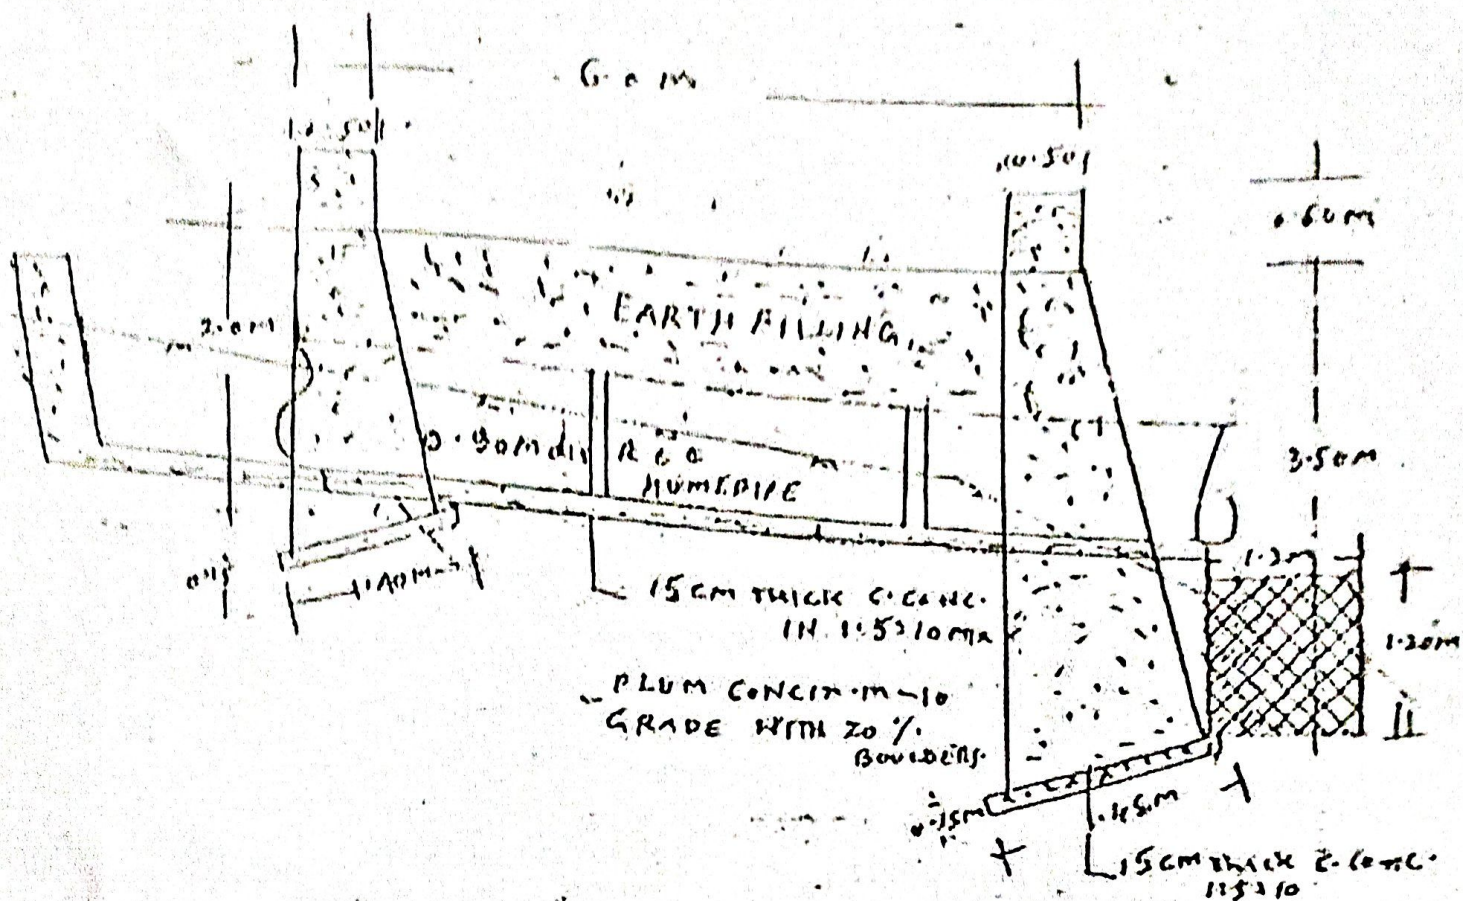 6.0 m
0.50
0.50
0.60m
EARTH FILLING
2.0m
0.90m dia R C C
HUMEPIPE
3.50m
1.2m
1.20m
0.15
1.40m
15 CM THICK C.CONC.
IN 1:5:10 mx
PLUM CONC IN M-10
GRADE WITH 20 %.
BOULDERS.
0.15m
.45m
15 CM THICK C.CONC.
1:5:10